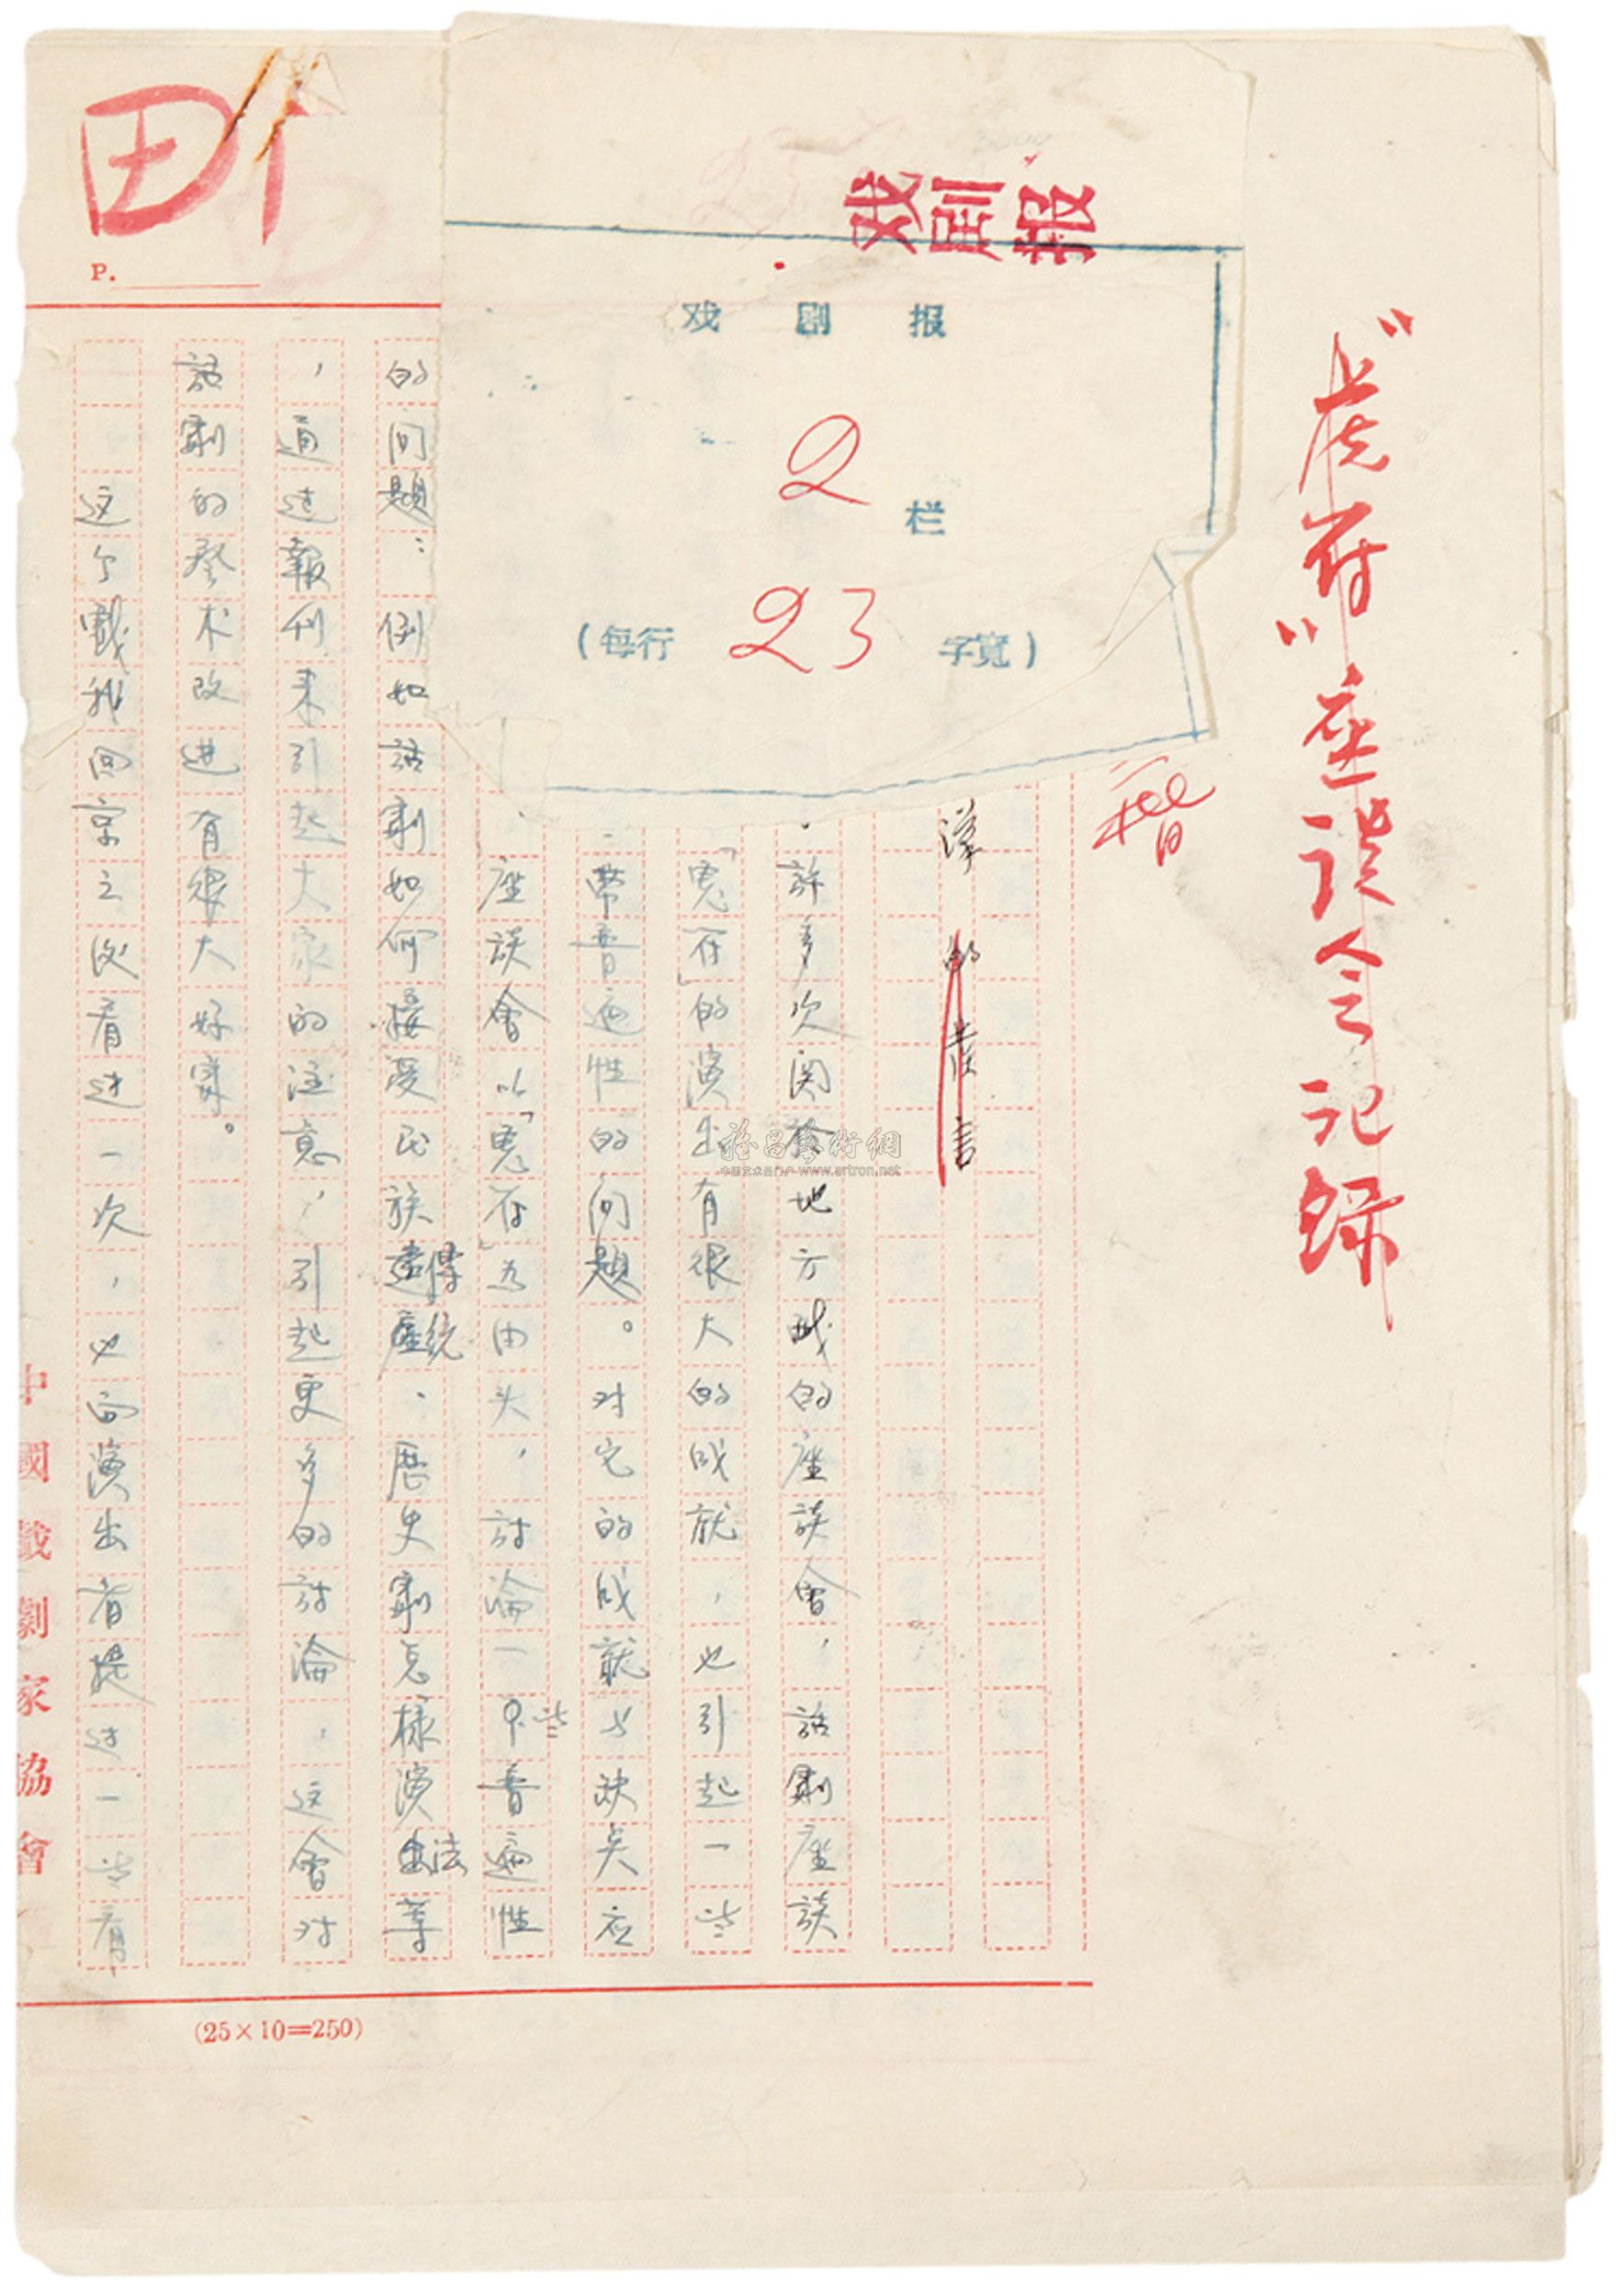 “虎符”座谈会记录
戏剧报
戏剧报
2栏
(每行 23 字宽)
田1
P.
漢的發言
許多次関於地方戯的座談会，話劇座談
「虎符」的演出有很大的成就，也引起一些
帶普遍性的问題。对它的成就与缺点应
座談會以「虎符」为由头，討論一个些普遍性
的问題：例如話劇如何接受民族遺産傳統、歷史劇怎樣演出法等
，通过報刊来引起大家的注意，引起更多的討論，这會对
話劇的藝术改进有很大好処。
这个戯我回京之後看过一次，也向演出者提过一些看
中國戲劇家協會
(25×10=250)
www.artron.net